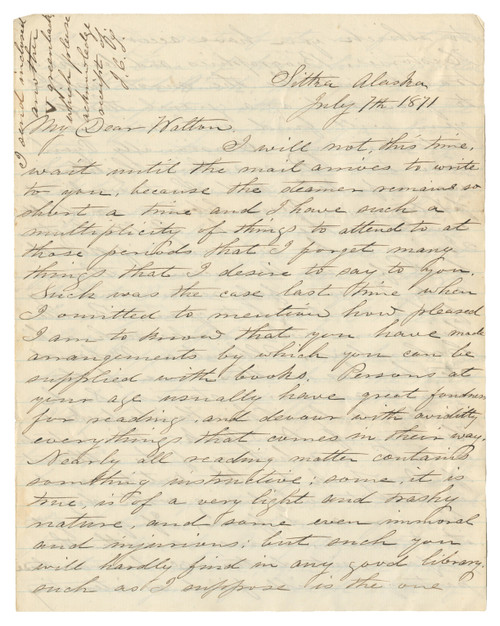 I send inclosed
another
V greenback
which please
acknowledge
receipt of
J. C. T.
Sitka Alaska
July 7th 1871
My Dear Walton,
I will not, this time,
wait until the mail arrives to write
to you, because the steamer remains so
short a time and I have such a
multiplicity of things to attend to at
those periods that I forget many
things that I desire to say to you.
Such was the case last time when
I omitted to mention how pleased
I am to know that you have made
arrangements by which you can be
supplied with books. Persons at
your age usually have great fondness
for reading, and devour with avidity
everythings that comes in their way.
Nearly all reading matter contains
something instructive; some, it is
true, is of a very light and trashy
nature, and some even immoral
and injurious; but such you
will hardly find in any good library,
such as I suppose is the one